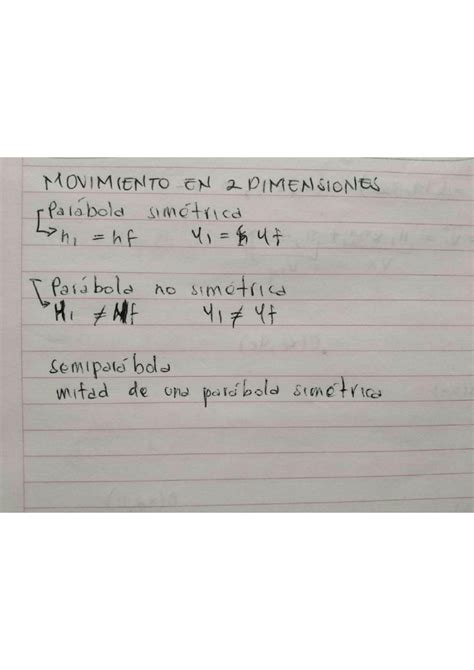 MOVIMIENTO EN 2 DIMENSIONES
Parábola simétrica
h₁ = hf   y₁ = yf
Parábola no simétrica
H₁ ≠ Hf   y₁ ≠ yf
semiparábola
mitad de una parábola simétrica